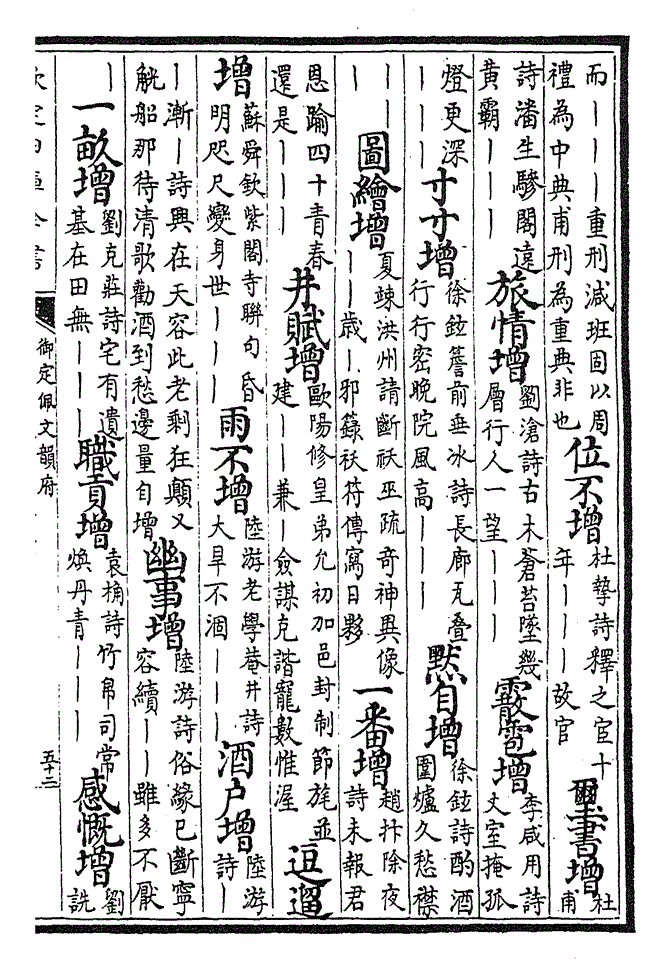 而｜｜｜重刑減班固以周
禮為中典甫刑為重典非也
位不增
杜摯詩釋之宦十
年｜｜｜故官
璽書增
杜
甫
詩潘生驂閣遠
黄霸｜｜｜
旅情增
劉滄詩古木蒼苔墜幾
層行人一望｜｜｜
霰雹增
李咸用詩
丈室掩孤
燈更深
｜｜｜
寸寸增
徐鉉簷前垂冰詩長廊瓦叠
行行密晚院風高｜｜｜
黙自增
徐鉉詩酌酒
圍爐久愁襟
｜｜
｜
圖繪增
夏竦洪州請斷祅巫疏竒神異像
｜｜歲｜邪籙祅符傳寫日夥
一番增
趙抃除夜
詩未報君
恩踰四十青春
還是｜｜｜
井賦增
歐陽修皇弟允初加邑封制節旄並
建｜｜兼｜僉謀克諧寵數惟渥
逗遛
增
蘇舜欽紫閣寺聯句昏
明咫尺變身世｜｜｜
雨不增
陸游老學菴井詩
大旱不涸｜｜｜
酒户增
陸游
詩｜
｜漸｜詩興在天容此老剩狂顛又
觥船那待清歌勸酒到愁邊量自增
幽事增
陸游詩俗緣已斷寧
容續｜｜雖多不厭
｜
一畝增
劉克莊詩宅有遺
基在田無｜｜｜
職貢增
袁桷詩竹帛司常
煥丹青｜｜｜
感慨增
劉
詵
欽定四庫全書
御定佩文韻府
五十二